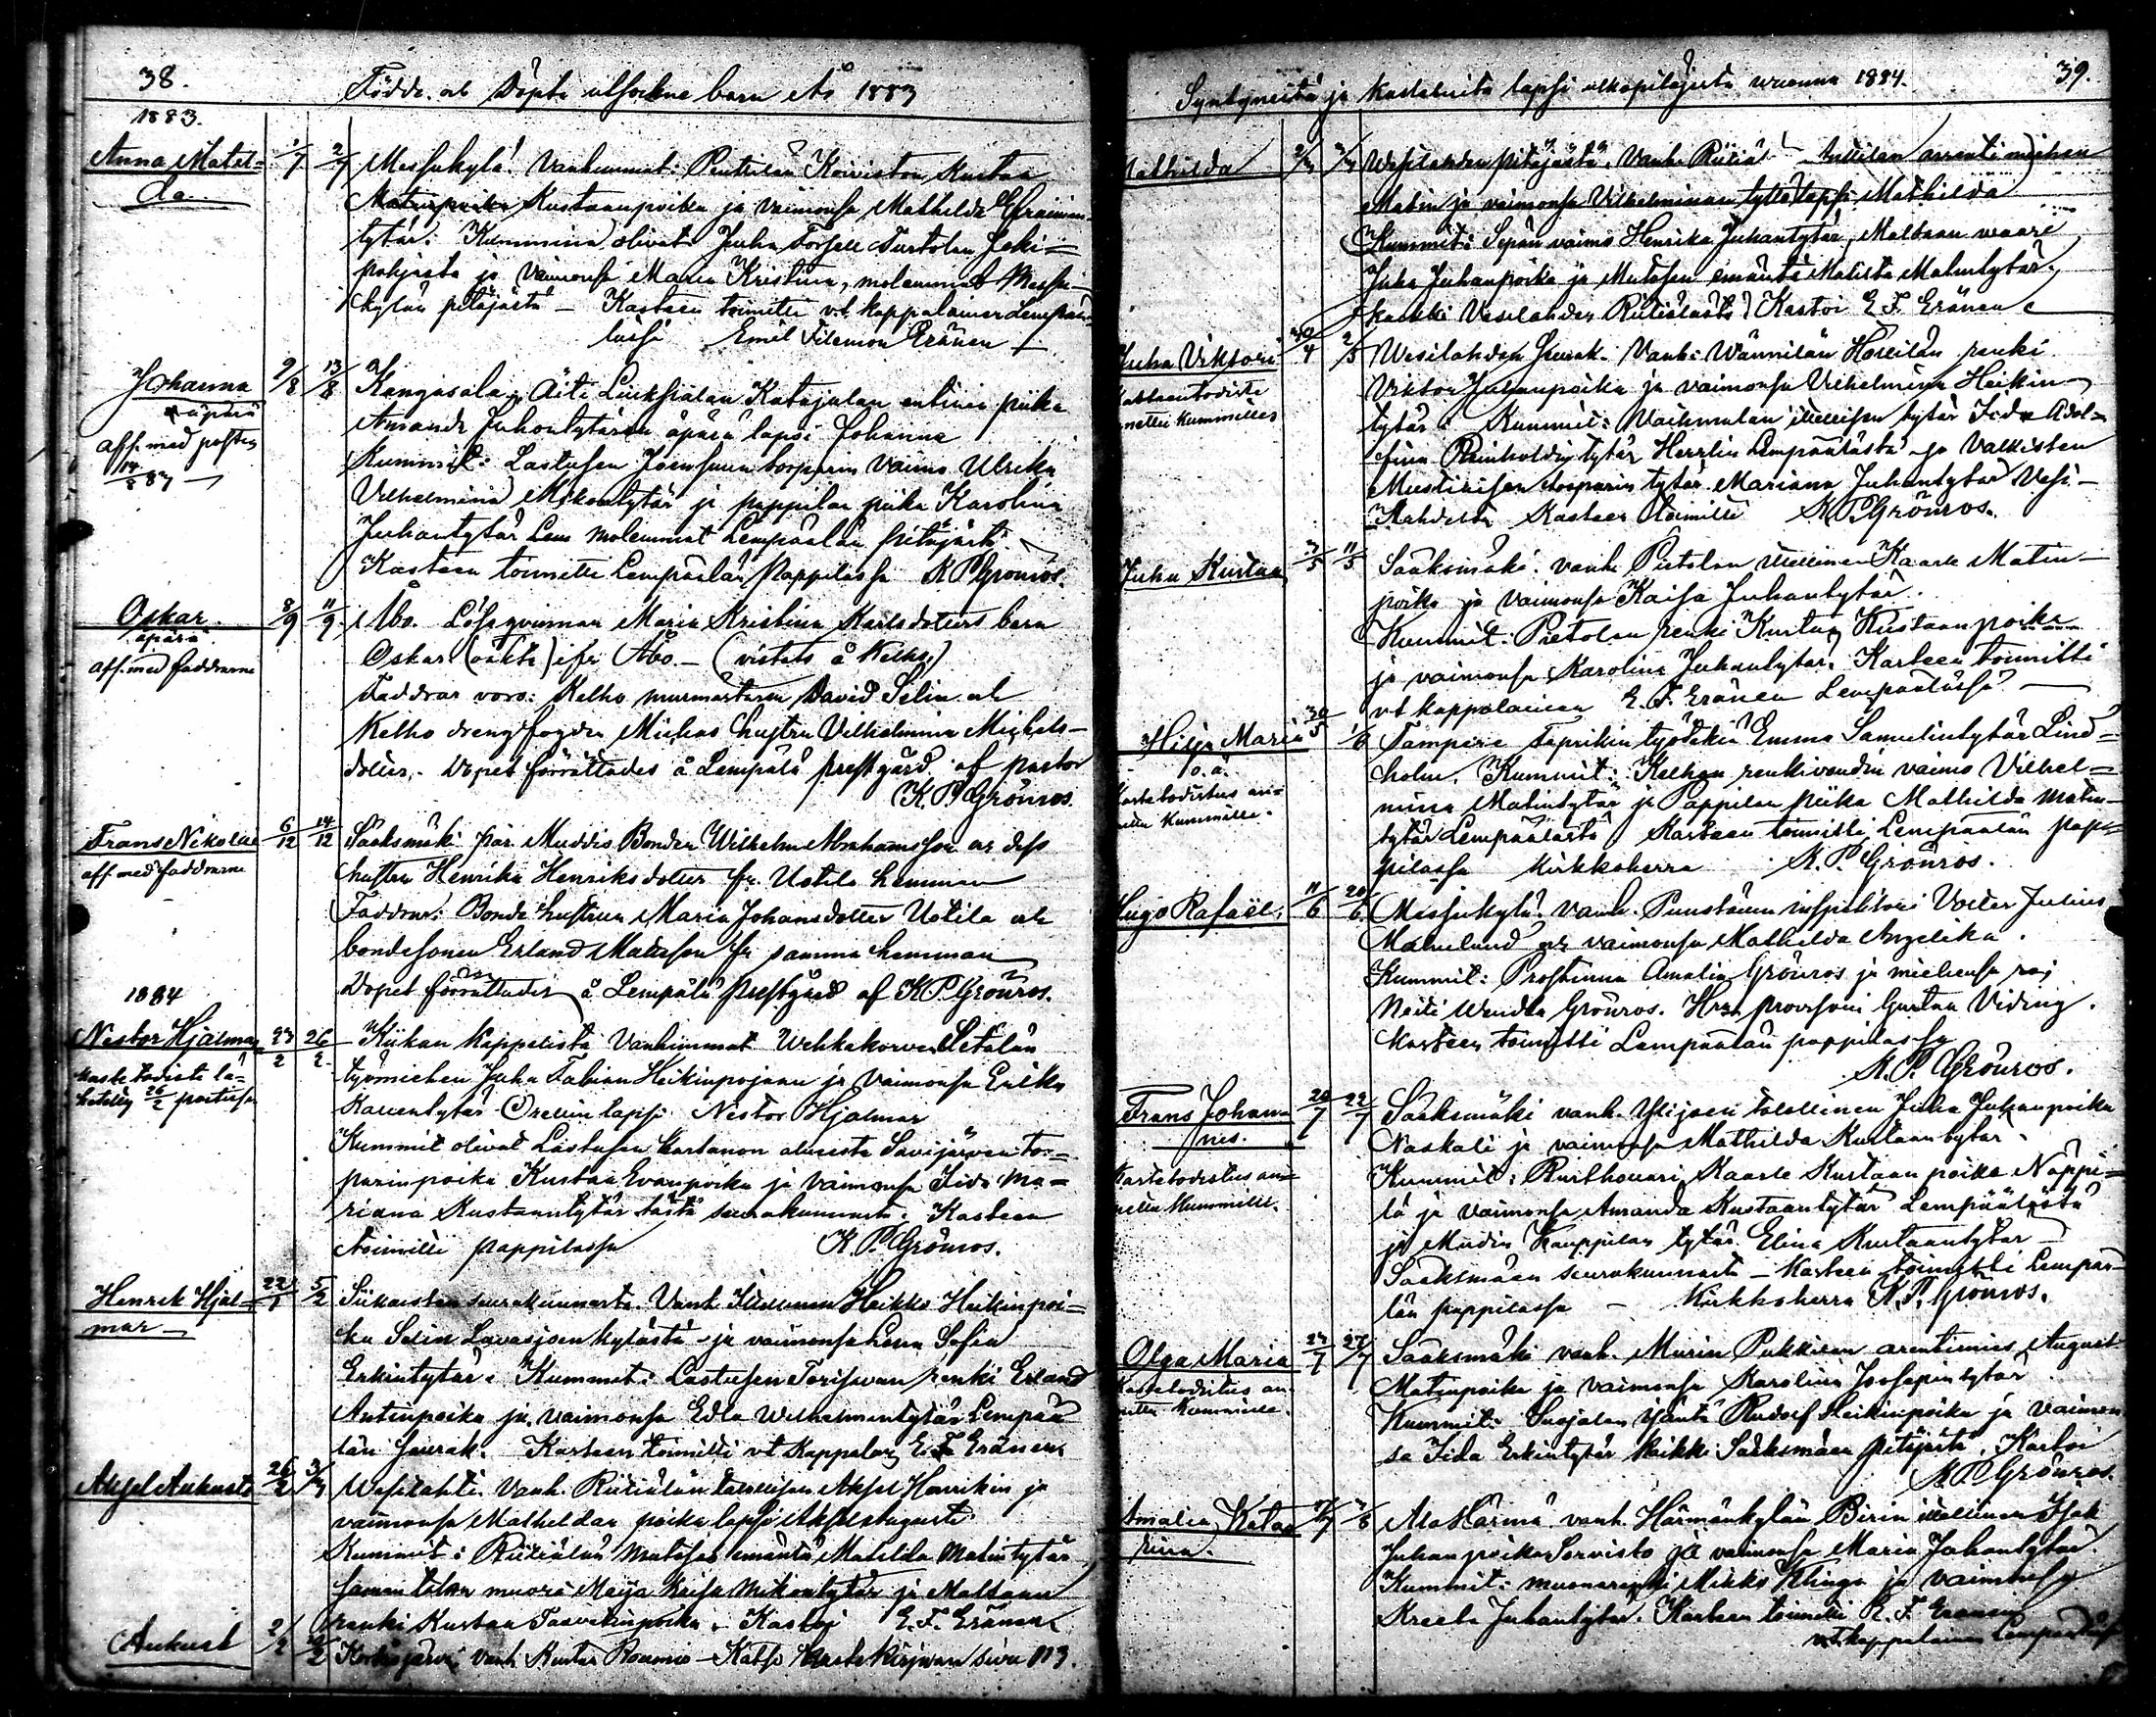 38.
Födde och Döpte utsockne barn år 1883
1883.
Anna Matel=
da
1/7 2/7 Messukylä. Vanhemmat: Penttilän Koiviston Kustaa
Kustaanpoika ja vaimonsa Mathilda Efraimin
tytär. Kummina olivat Juha Forsell Turtolan Joki=
pohjasta ja vaimonsa Maria Kristina, molemmat Messu=
kylän pitäjästä – Kasteen toimitti v.t. kappalainen Lempää=
lässä Emil Filemon Eränen
Johanna
äpärä
aff. med posten
14/8 83
9/8 13/8 Kangasala. Äiti Liuksialan Katajalan entinen piika
Amanda Juhontytären äpärä lapsi Johanna
Kummit: Lastusen Joensuun torparin vaimo Ulrika
Vilhelmina Mikontytär ja pappilan piika Karolina
Juhantytär Lem molemmat Lempäälän pitäjästä
Kasteen toimitti Lempäälän Pappilassa K P Grönros.
Oskar.
äpärä
aff. med faddrarne
8/9 11/9 Åbo. Lösqvinnan Maria Kristina Karlsdotters barn
Oskar (oäkta) ifr Åbo – (vistats å Kelho.)
Faddrar voro: Kelho murmästaren David Selin och
Kelho drengfogden Michos hustru Vilhelmina Michels-
dotter. Dopet förrättades å Lempälä prestgård af pastor
K. P. Grönros
Frans Nikolai
aff. med faddrarne
6/12 14/12 Sääksmäki får. Muddis Bonden Wilhelm Abrahamsson och dess
hustru Henrika Henriksdotter fr. Uotila hemman
Faddrar: Bonde hustrun Maria Johansdotter Uotila och
bondesonen Erland Matsson fr samma hemman
Dopet förrättades å Lempälä Prestgård af K P Grönros.
1884
Nestor Hjalmar
kaste todiste lä=
hetetty 26/2 postissa
23/2 26/2 Kiikan Kappelista Vanhimmat Wehkakorven Setälän
työmiehen Juha Fabian Heikinpojan ja vaimonsa Erika
Kallentytär Orellin lapsi Nestor Hjalmar
Kummit olivat Lastusen kartanon alueesta Savijärven tor=
parin poika Kustaa Evanpoika ja vaimonsa Iida Ma=
riana Kustaantytär tästä seurakunnasta. Kasteen
toimitti pappilassa K. P. Grönros.
Henrik Hjal=
mar
22/1 5/2 Siikaisten seurakunnasta. Vanh Itsellinen Heikki Heikinpoi=
ka Selin Lavasjoen kylästä ja vaimonsa Leena Sofia
Erkintytär. Kummit: Lastusen Torisevan renki Erland
Antinpoika ja vaimonsa Edla Wilhelmentytär Lempää
län seurak. Kasteen toimitti vt Kappalan E. F. Eränen
Aksel Aukusti
26/2 3/3 Wesilahti. Vanh. Riitialan Aksel Henrikin ja
vaimonsa Matheldan poika lapsi Aksel Augusti
Kummit: Riitialan emäntä Matilda Matintytär
saman talon muori Maija Kaisa Mikontytär ja Maltaan
renki Kustaa Taavetinpoika. Kastoj E. F. Eränen
Aukust
2/2 Kortesjärvi vanh Kustaa Roumio – Katso Kastekirjan sivu 113.
Syntyneitä ja kastetuita lapsi ulkopitäjistä wuonna 1884.
39.
Mathilda
Wesilahden pitäjästä. Vanh. Riitiäl Anttilan arrentimiehen
Matin ja vaimonsa Vilhelminan tyttölapsi Mathilda
Kummit: Sepän vaimo Henrika Juhantytär, Maltaan waari
Juha Juhanpoika ja emäntä Matilda Matintytär,
kaikki Vesilahden Riitialasta Kastoi E F. Eränen
Juha Viktori
Kastaantodiste
annettu kummilles
20/4 2/5 Wesilahden seurak. Vanh: Wännilän Hollilan renki
Viktor Juhanpoika ja vaimonsa Vilhelmina Heikin-
tytär. Kummit: itsellisen tytär Iida Adol=
fina Reinholdin tytär Herrlin Lempäälästä ja Valkisten
Mustinisen torparin tytär Mariana Juhantytär Vesi-
lahdelta Kasteen toimitti K P. Grönros.
Juha Kustaa
3/5 11/5 Sääksmäki. vanh. Pietolan itsellinen Kaarle Matin-
poika ja vaimonsa Kaisa Juhantytär.
Kummit: Pietolan renki Kustaa Kustaanpoika
ja vaimonsa Karolina Juhantytär. Kasteen toimitti
vt kappalainen E. F. Eränen Lempäälässä
Hilja Maria
o. ä.
Kastetodistus an=
nettu kummille.
30/5 1/6 Tampere Faprikin työtekiä Emma Samulintytär Lind=
holm. Kummit: Kelhon renkivoudin vaimo Vilhel=
mina Matintytär ja Pappilan piika Mathilda Matin-
tytär Lempäälästä. Kasteen toimitti Lempäälän pap=
pilassa Kirkkoherra K. P. Grönros.
Hugo Rafael.
11/6 20/6 Messukylä. vanh. Punstanin inspehtori Volter Julius
Malmlund och vaimonsa Mathilda Angelika.
Kummit: Prostinna Amalia Grönros ja miehensä roj
Neiti Wendla Grönros. Hra provisori Gustaa Viding.
Kasteen toimitti Lempäälän pappilassa
K. P. Grönros.
Frans Johan=
nes.
Kastetodistus an=
nettu Kummille.
20/7 22/7 Sääksmäki vanh. Ylijoen talollinen Juha Juhanpoika
Naskali ja vaimonsa Mathilda Kustaantytär.
Kummit: Rusthollari Kaarle Kustaanpoika Näppi=
lä ja vaimonsa Amanda Kustaantytär Lempäälästä
ja Mudin Kauppilan tytär. Elina Kustaantytär
Sääksmäen seurakunnasta – Kasteen toimitti Lempää-
län pappilassa – Kirkkoherra K. P. Grönros.
Olga Maria
Kastetodistus an-
nettu Kummille.
27/7 Sääksmäki vanh. Murin Pukkisen arentimies August
Matinpoika ja vaimonsa Karolina Joosepintytär
Kummit: Suojalan isäntä Rudolf Heikinpoika ja vaimon
sa Iida Erkintytär kaikki Sääksmäen pitäjästä. Kastoi
K. P. Grönros.
Amalia Kata=
rina.
AlaHärmä vanh. Härmänkylän Birin itsellinen Isak
Juhanpoika Sorvisto ja vaimonsa Maria Juhantytär
Kummit: muonarenki Mikko Klinga ja vaimonsa
Kreeta Juhantytär. Kasteen toimitti E. F. Eränen
vt. kappalainen Lempäälässä